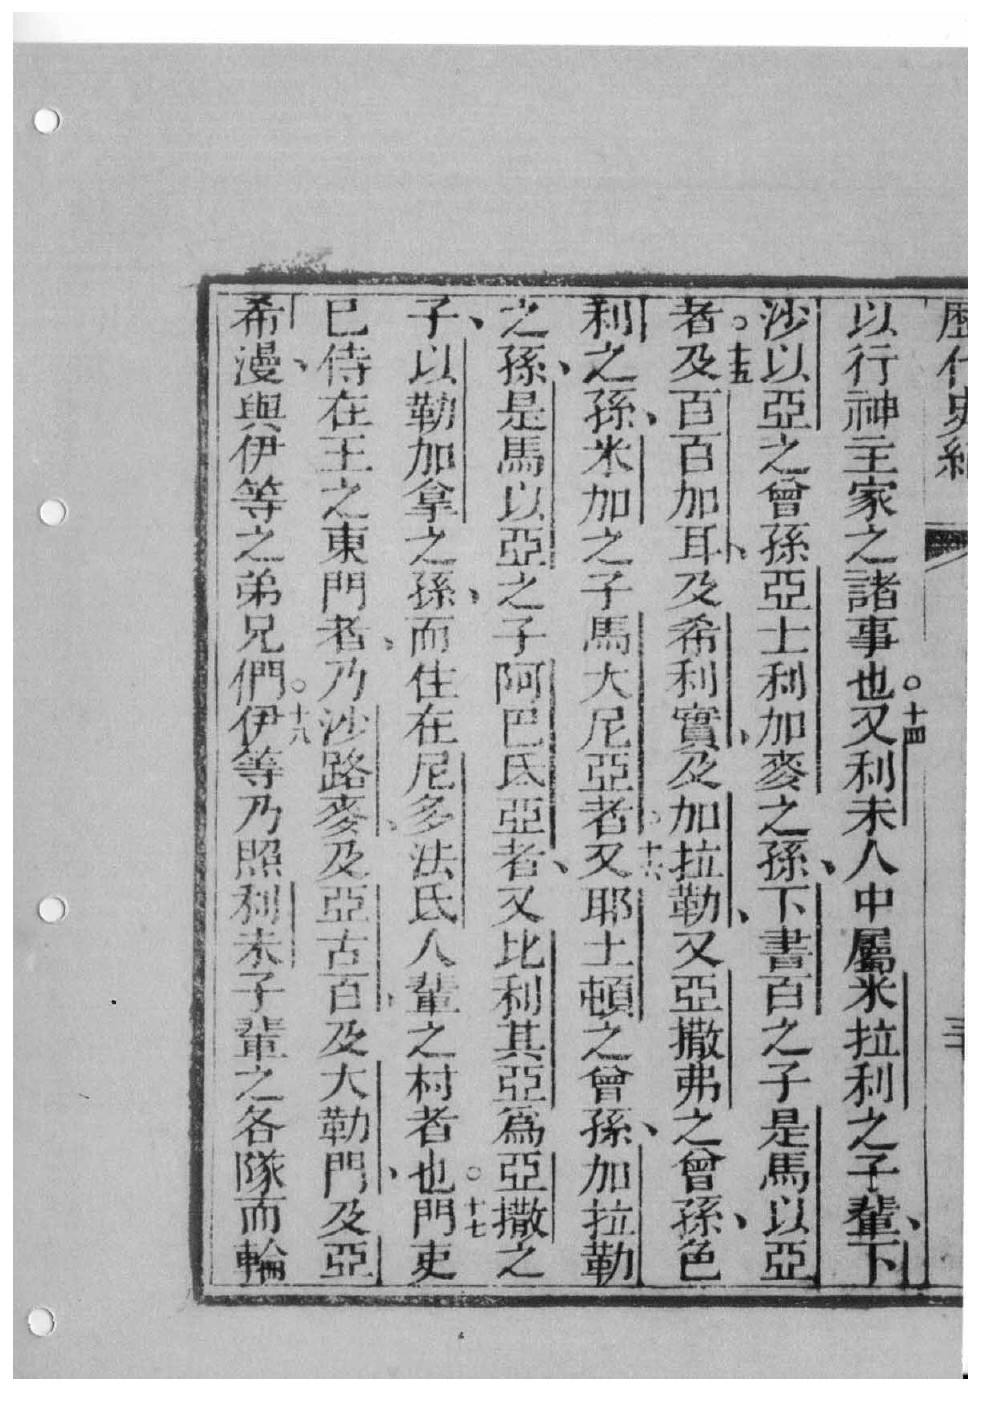 歷代史紀
以行神主家之諸事也。十四又利未人中屬米拉利之子輩、下
沙以亞之曾孫亞士利加麥之孫、下書百之子是馬以亞
者。十五及百百加耳、及希利實、及加拉勒、又亞撒弗之曾孫、色
利之孫、米加之子馬大尼亞者。十六又耶土頓之曾孫、加拉勒
之孫、是馬以亞之子阿巴氐亞者、又比利其亞為亞撒之
子、以勒加拿之孫、而住在尼多法氏人輩之村者也。十七門吏
已侍在王之東門者、乃沙路麥、及亞古百、及大勒門、及亞
希漫、與伊等之弟兄們。十八伊等乃照利未子輩之各隊而輪